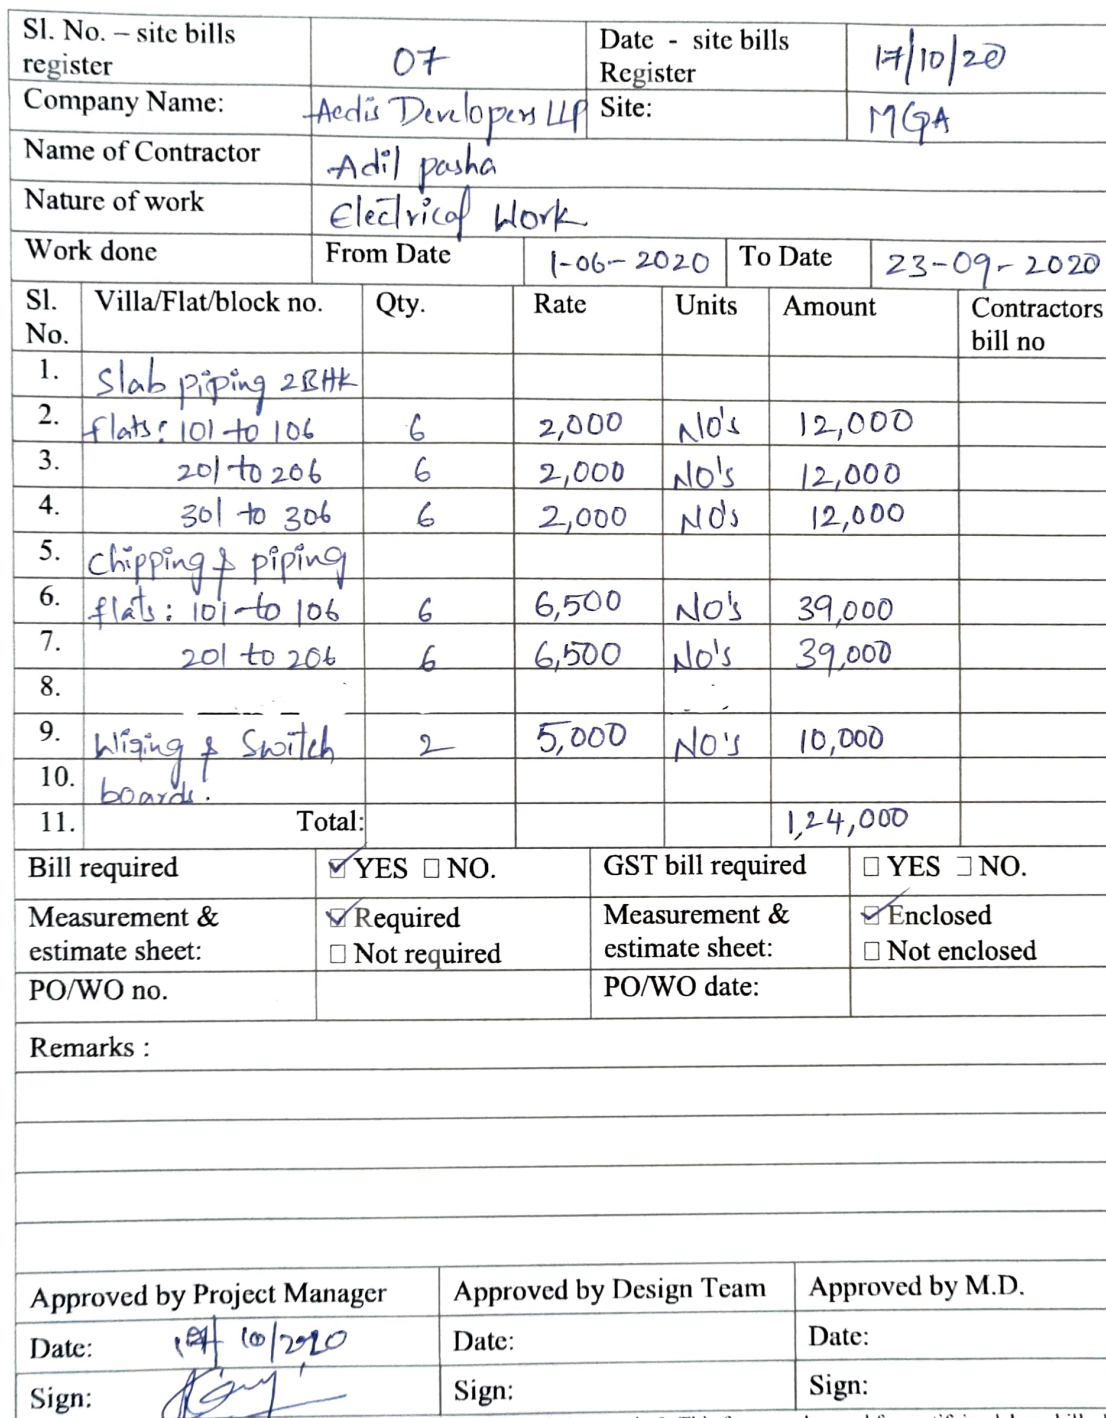 Sl. No. – site bills register 07 Date - site bills Register 17/10/20
Company Name: Aedis Developers LLP Site: MGA
Name of Contractor Adil pasha
Nature of work Electrical Work
Work done From Date 1-06-2020 To Date 23-09-2020
Sl. No. Villa/Flat/block no. Qty. Rate Units Amount Contractors bill no
1. Slab piping 2BHK
2. flats: 101 to 106 6 2,000 NO's 12,000
3. 201 to 206 6 2,000 NO's 12,000
4. 301 to 306 6 2,000 NO's 12,000
5. Chipping & piping
6. flats: 101 to 106 6 6,500 NO's 39,000
7. 201 to 206 6 6,500 NO's 39,000
8.
9. Wiring & Switch 2 5,000 NO's 10,000
10. boards.
11. Total: 1,24,000
Bill required ☑ YES ☐ NO. GST bill required ☐ YES ☐ NO.
Measurement & estimate sheet: ☑ Required ☐ Not required Measurement & estimate sheet: ☑ Enclosed ☐ Not enclosed
PO/WO no. PO/WO date:
Remarks :
Approved by Project Manager Approved by Design Team Approved by M.D.
Date: 10/2020 Date: Date:
Sign: Sign: Sign: